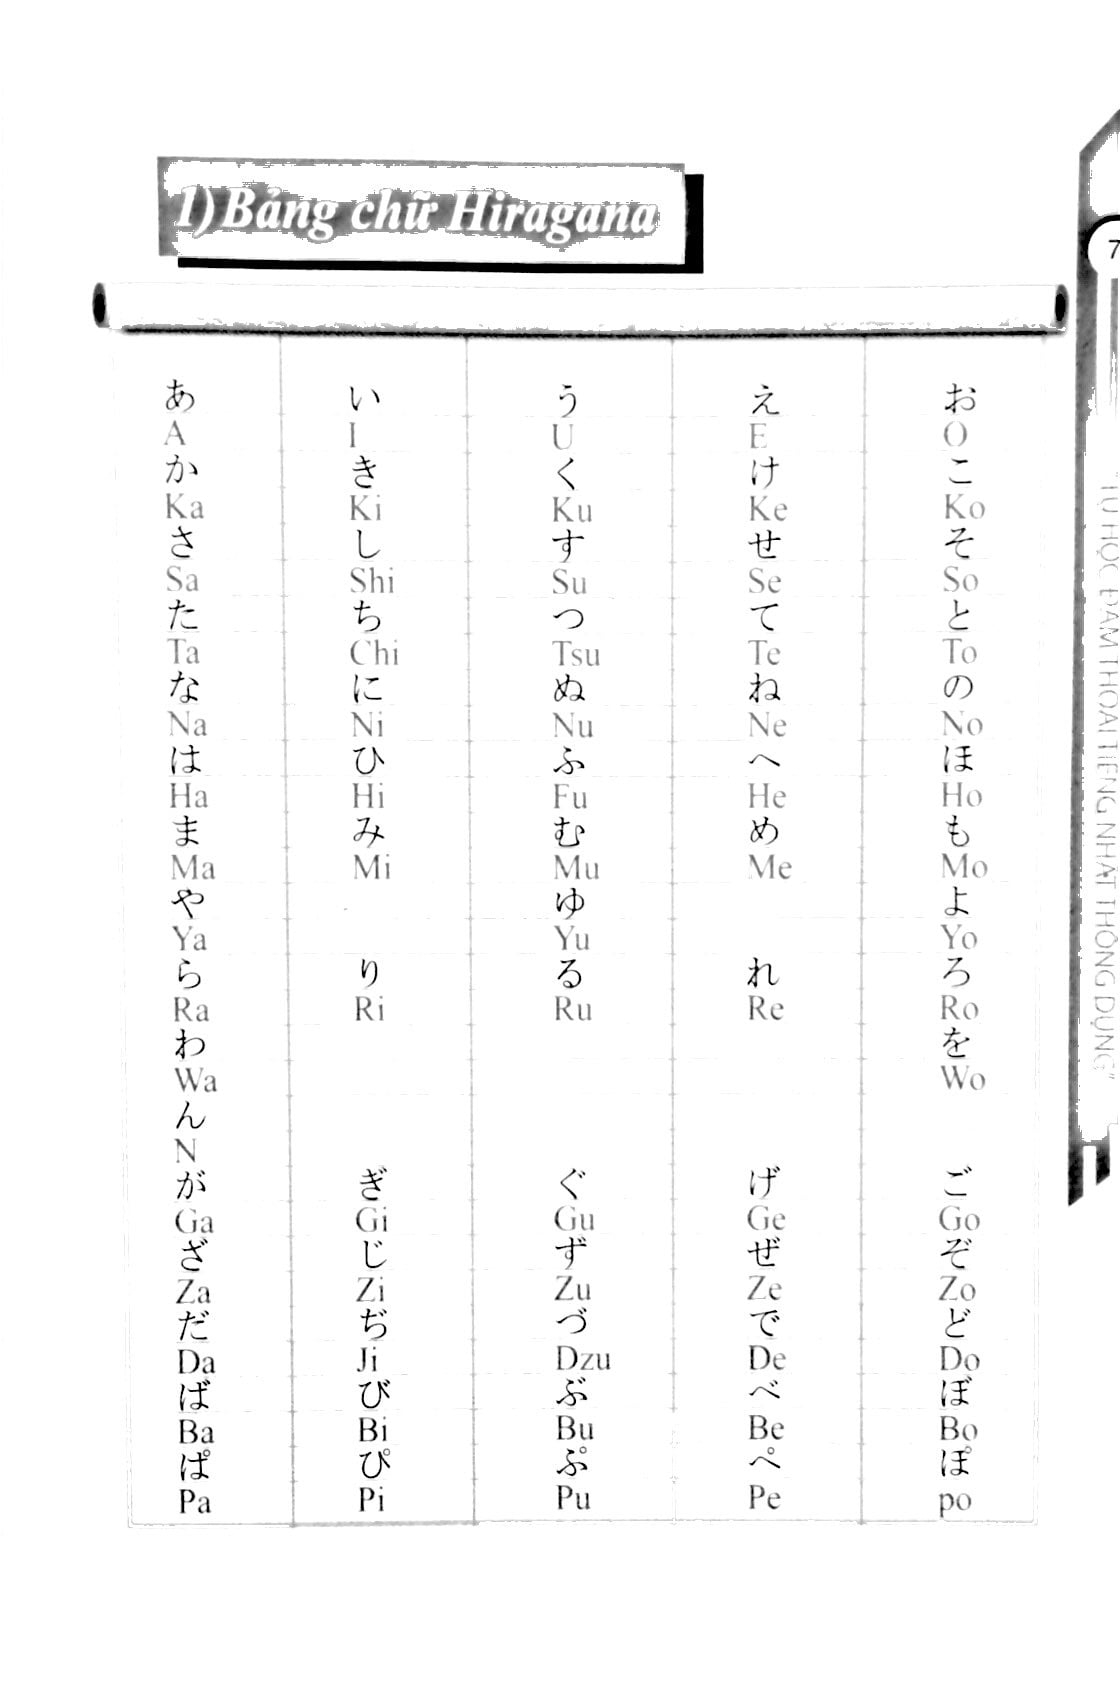 1) Bảng chữ Hiragana
7
あ い う え お
A I U E O
か き く け こ
Ka Ki Ku Ke Ko
さ し す せ そ
Sa Shi Su Se So
た ち つ て と
Ta Chi Tsu Te To
な に ぬ ね の
Na Ni Nu Ne No
は ひ ふ へ ほ
Ha Hi Fu He Ho
ま み む め も
Ma Mi Mu Me Mo
や ゆ よ
Ya Yu Yo
ら り る れ ろ
Ra Ri Ru Re Ro
わ を
Wa Wo
ん
N
が ぎ ぐ げ ご
Ga Gi Gu Ge Go
ざ じ ず ぜ ぞ
Za Zi Zu Ze Zo
だ ぢ づ で ど
Da Ji Dzu De Do
ば び ぶ べ ぼ
Ba Bi Bu Be Bo
ぱ ぴ ぷ ぺ ぽ
Pa Pi Pu Pe po
"TỰ HỌC ĐÀM THOẠI TIẾNG NHẬT THÔNG DỤNG"